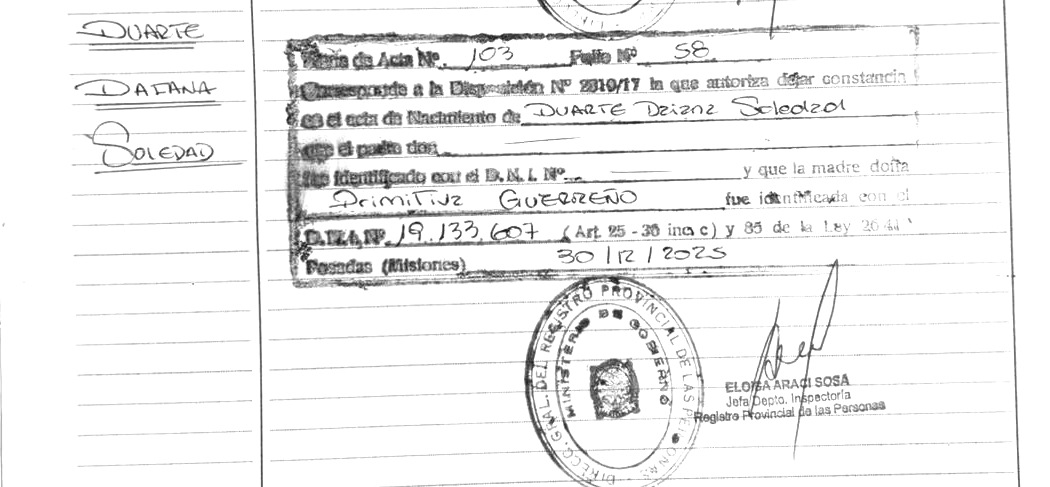 DUARTE
DAIANA
SOLEDAD
Nota de Acta Nº 103 Folio Nº 58
Corresponde a la Disposición Nº 2310/17 la que autoriza dejar constancia
en el acta de Nacimiento de DUARTE Daiana Soledad
que el padre don
fue identificado con el D.N.I. Nº. y que la madre doña
Primitiva GUERREÑO fue identificada con el
D.N.I. Nº 19.133.607 (Art. 25 - 36 inc c) y 85 de la Ley 26.41
Posadas (Misiones) 30/12/2025
DIRECC. GRAL. DEL REGISTRO PROVINCIAL DE LAS PERSONAS
MINISTERIO DE GOBIERNO
ELOISA ARACI SOSA
Jefa Depto. Inspectoría
Registro Provincial de las Personas